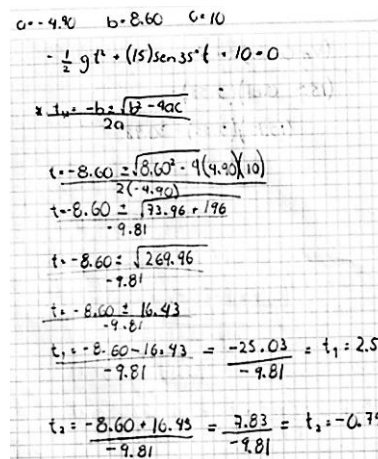 a=-4.90 b=8.60 c=10
-1/2 g t² + (15)sen35°t + 10=0
* tₓ= -b±√b²-4ac / 2a
t=-8.60 ±√8.60²-4(4.90)(10) / 2(-4.90)
t=-8.60 ± √73.96+196 / -9.81
t=-8.60± √269.96 / -9.81
t=-8.60 ± 16.43 / -9.81
t₁=-8.60-16.43 / -9.81 = -25.03 / -9.81 = t₁=2.5
t₂=-8.60+16.43 / -9.81 = 7.83 / -9.81 = t₂=-0.79